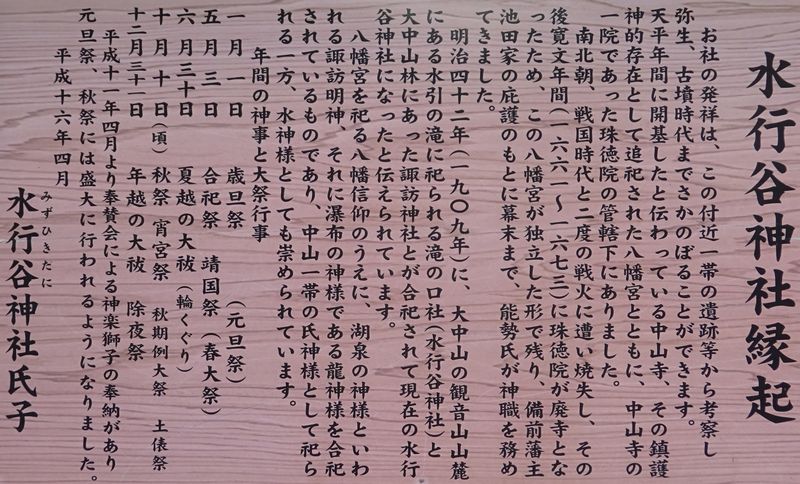 水行谷神社縁起
お社の発祥は、この付近一帯の遺跡等から考察し
弥生、古墳時代までさかのぼることができます。
天平年間に開基したと伝わっている中山寺、その鎮護
神的存在として追祀された八幡宮とともに、中山寺の
一院であった珠徳院の管轄下にありました。
南北朝、戦国時代と二度の戦火に遭い焼失し、その
後寛文年間(一六六一～一六七三)に珠徳院が廃寺とな
ったため、この八幡宮が独立した形で残り、備前藩主
池田家の庇護のもとに幕末まで、能勢氏が神職を務め
てきました。
明治四十二年(一九〇九年)に、大中山の観音山山麓
にある水引の滝に祀られる滝の口社(水行谷神社)と
大中山林にあった諏訪神社とが合祀されて現在の水行
谷神社になったと伝えられています。
八幡宮を祀る八幡信仰のうえに、湖泉の神様といわ
れる諏訪明神、それに瀑布の神様である龍神様を合祀
されているものであり、中山一帯の氏神様として祀ら
れる一方、水神様としても崇められています。
年間の神事と大祭行事
一月一日 歳旦祭 (元旦祭)
五月三日 合祀祭 靖国祭 (春大祭)
六月三十日 夏越の大祓 (輪くぐり)
十月十日(頃) 秋祭 宵宮祭 秋期例大祭 土俵祭
十二月三十一日 年越の大祓 除夜祭
平成十一年四月より奉賛会による神楽獅子の奉納があり
元旦祭、秋祭には盛大に行われるようになりました。
平成十六年四月
みずひきたに
水行谷神社氏子